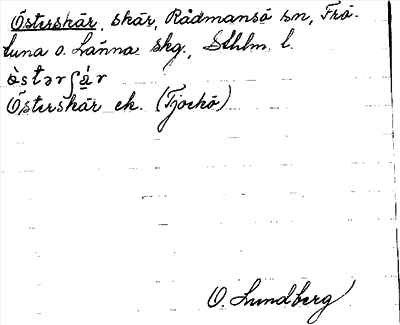 Österskär, skär, Rådmansö sn, Frö-
tuna o. Länna skg, Sthlm. l.
ö̀stərʃä́r
Österskär ek. (Tjockö)
O. Lundberg